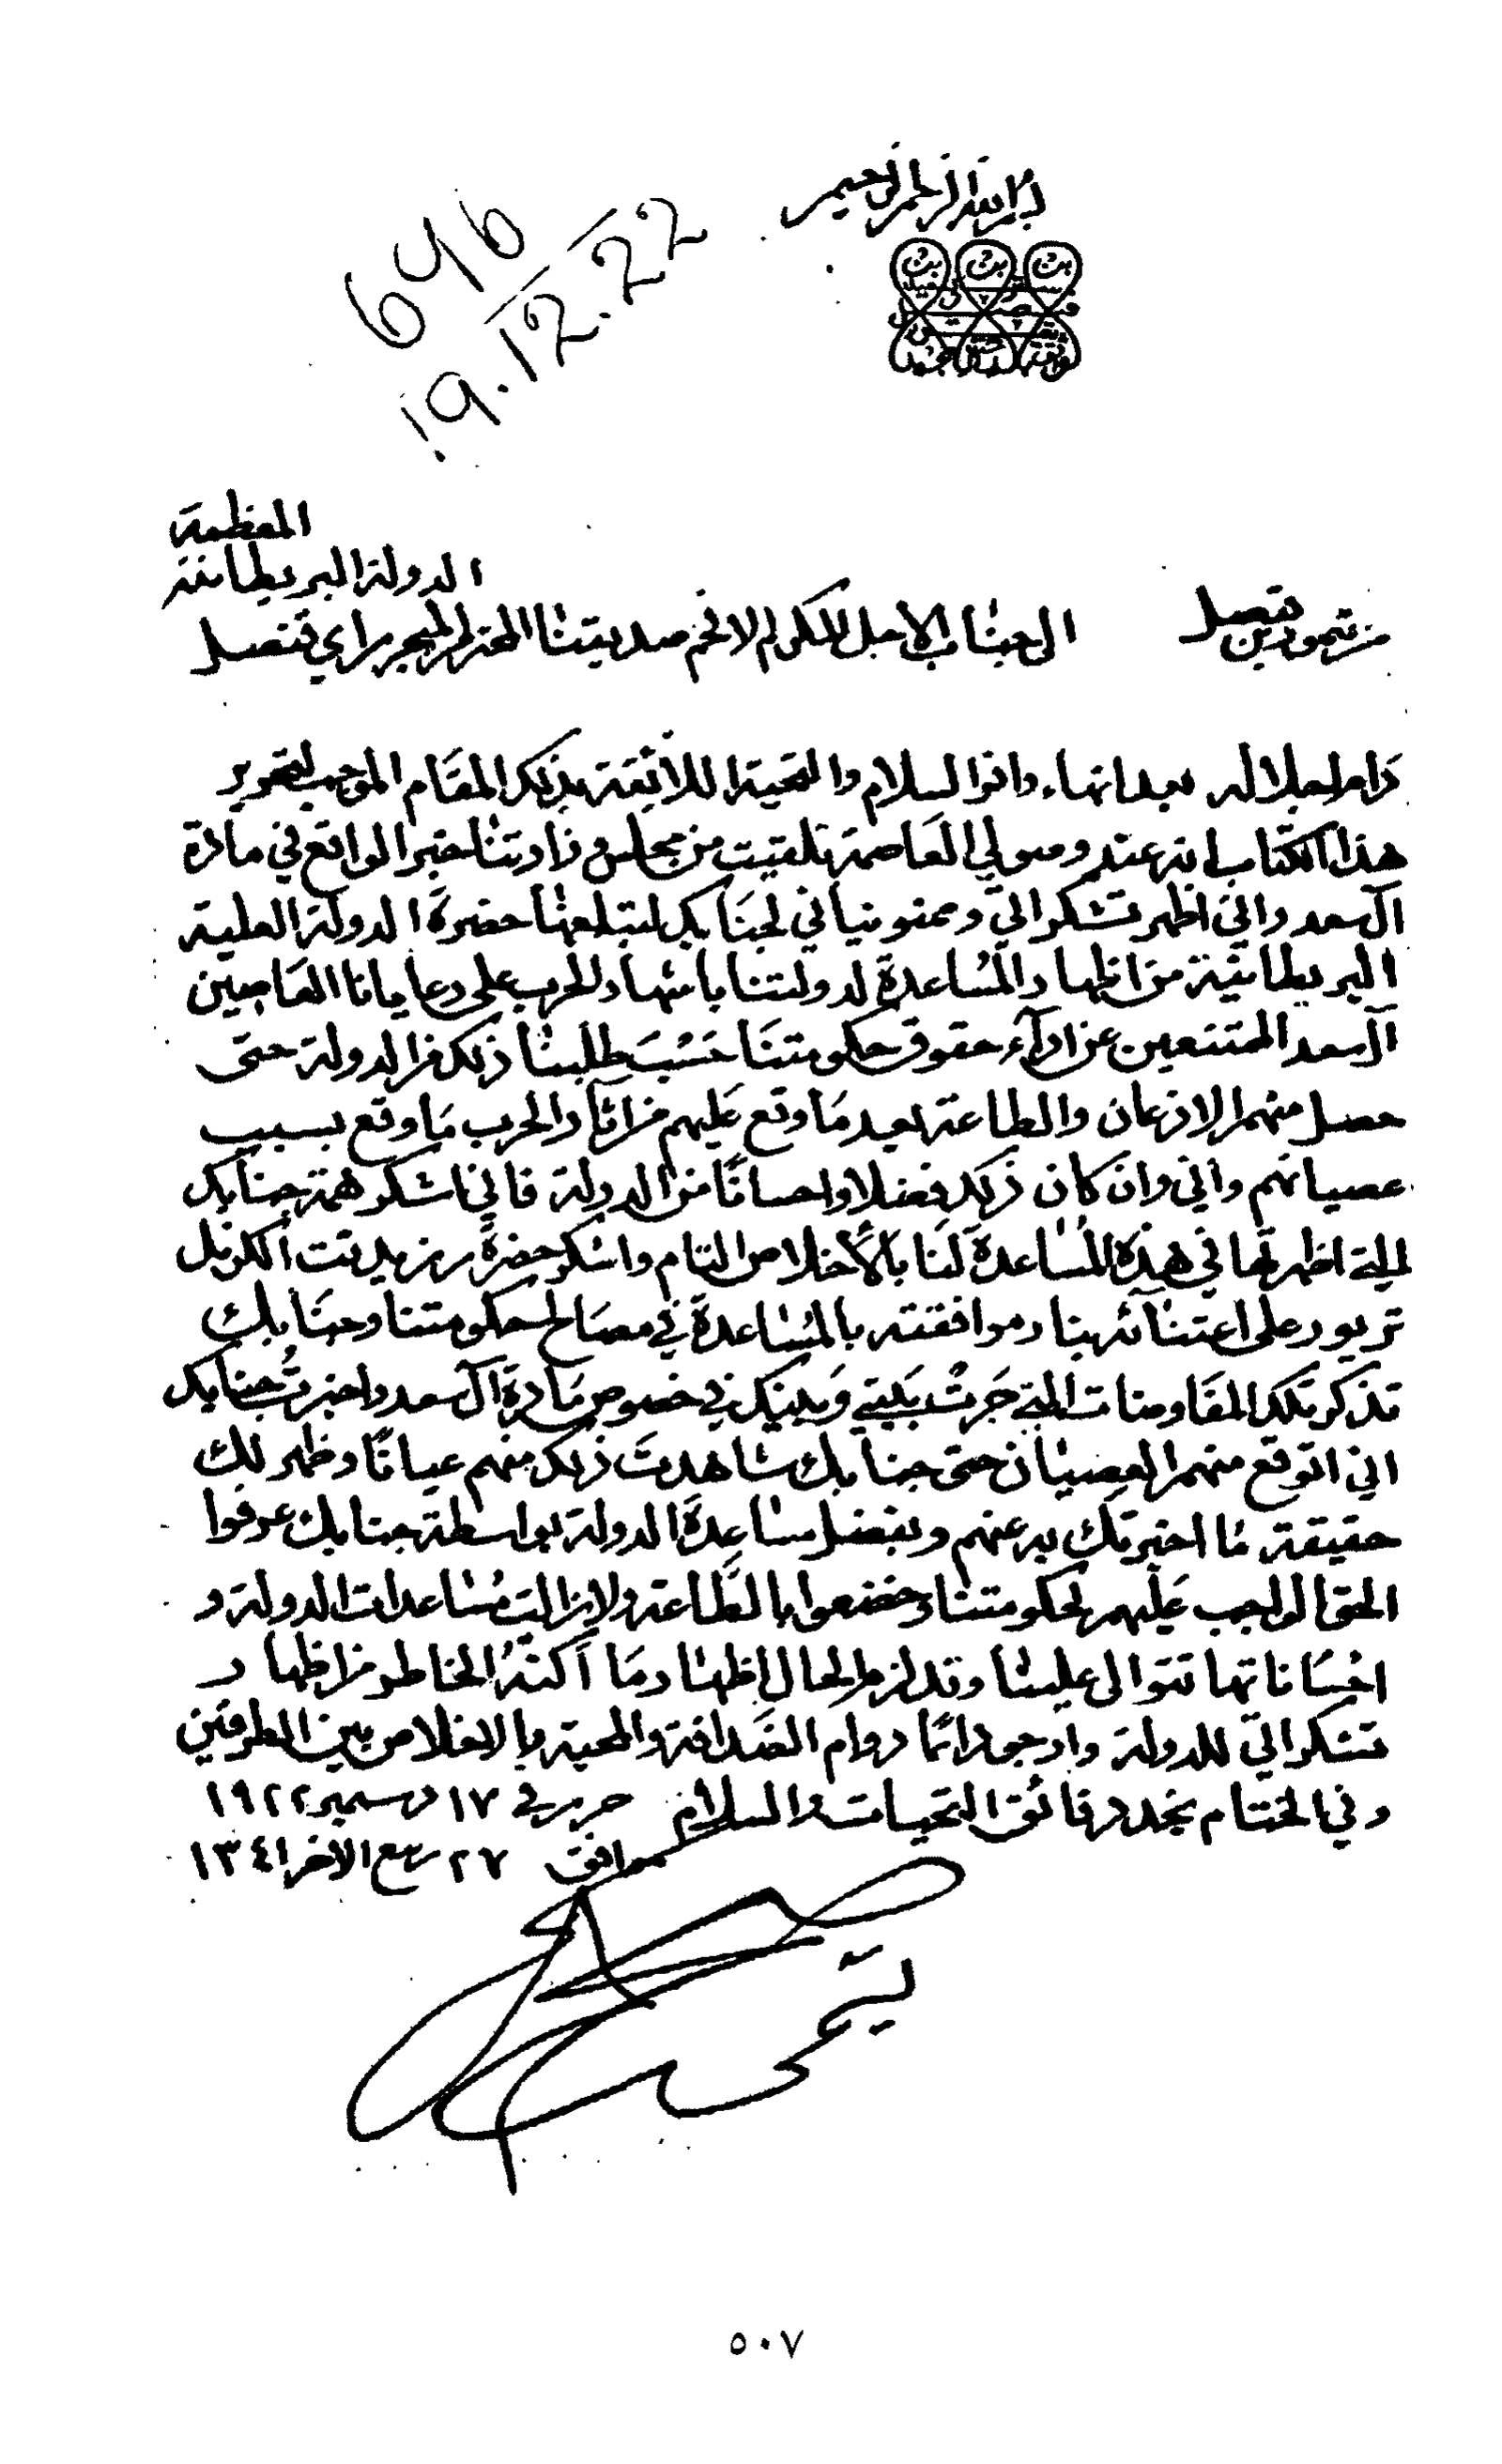 بسم الله الرحمن الرحيم
646
19.12.22
المعظمة
الدولة البريطانية
من تيمور بن فيصل الى جناب الاجل المكرم الافخم صديقنا المعزز الميجر راي قنصل
دام اجلاله بعد انهاء وافر السلام والتحية اللائقة بذلك المقام الموجب لتحرير
هذا الكتاب انه عند وصولي العاصمة تلقيت من مجلس وزارتنا الخبر الواقع في مادة
آل سعد واني اظهر تشكراتي وممنونياتي لجنابك لتبلغها حضرة الدولة العلية
البريطانية من اظهار المساعدة لدولتنا باشهار الحرب على رعايانا العاصين
آل سعد الممتنعين عن ادآء حقوق حكومتنا حسب طلبنا ذلك من الدولة حتى
حصل منهم الاذعان والطاعة بعد ما وقع عليهم من اثار الحرب ما وقع بسبب
عصيانهم واني وان كان ذلك فضلا واحسانا من الدولة فاني اشكر همة جنابك
التي اظهرتها في هذه المساعدة لنا بالأخلاص التام واشكر حضرة رزيدنت الكرنل
تريور على اعتنائه بنا وموافقته بالمساعدة في مصالح حكومتنا وجنابك
تذكر تلك المفاوضات التي جرت بيني وبينك في خصوص مادة آل سعد واخبرت جنابك
اني اتوقع منهم العصيان حتى جنابك شاهدت ذلك منهم عيانا وظهر لك
حقيقة ما اخبرتك به عنهم وبفضل مساعدة الدولة بواسطة جنابك عرفوا
الحق الواجب عليهم لحكومتنا وخضعوا بالطاعة ولا زالت مساعدات الدولة و
احساناتها تتوالى علينا وقد لزم الحال اظهار ما اكنه الخاطر من اظهار
تشكراتي للدولة وارجو دائما دوام الصداقة والمحبة بالاخلاص بين الطرفين
وفي الختام نجدد فائق التحيات والسلام حرر في ١٧ دسمبر ١٩٢٢
موافق ٢٧ ربيع الآخر ١٣٤١
٥٠٧